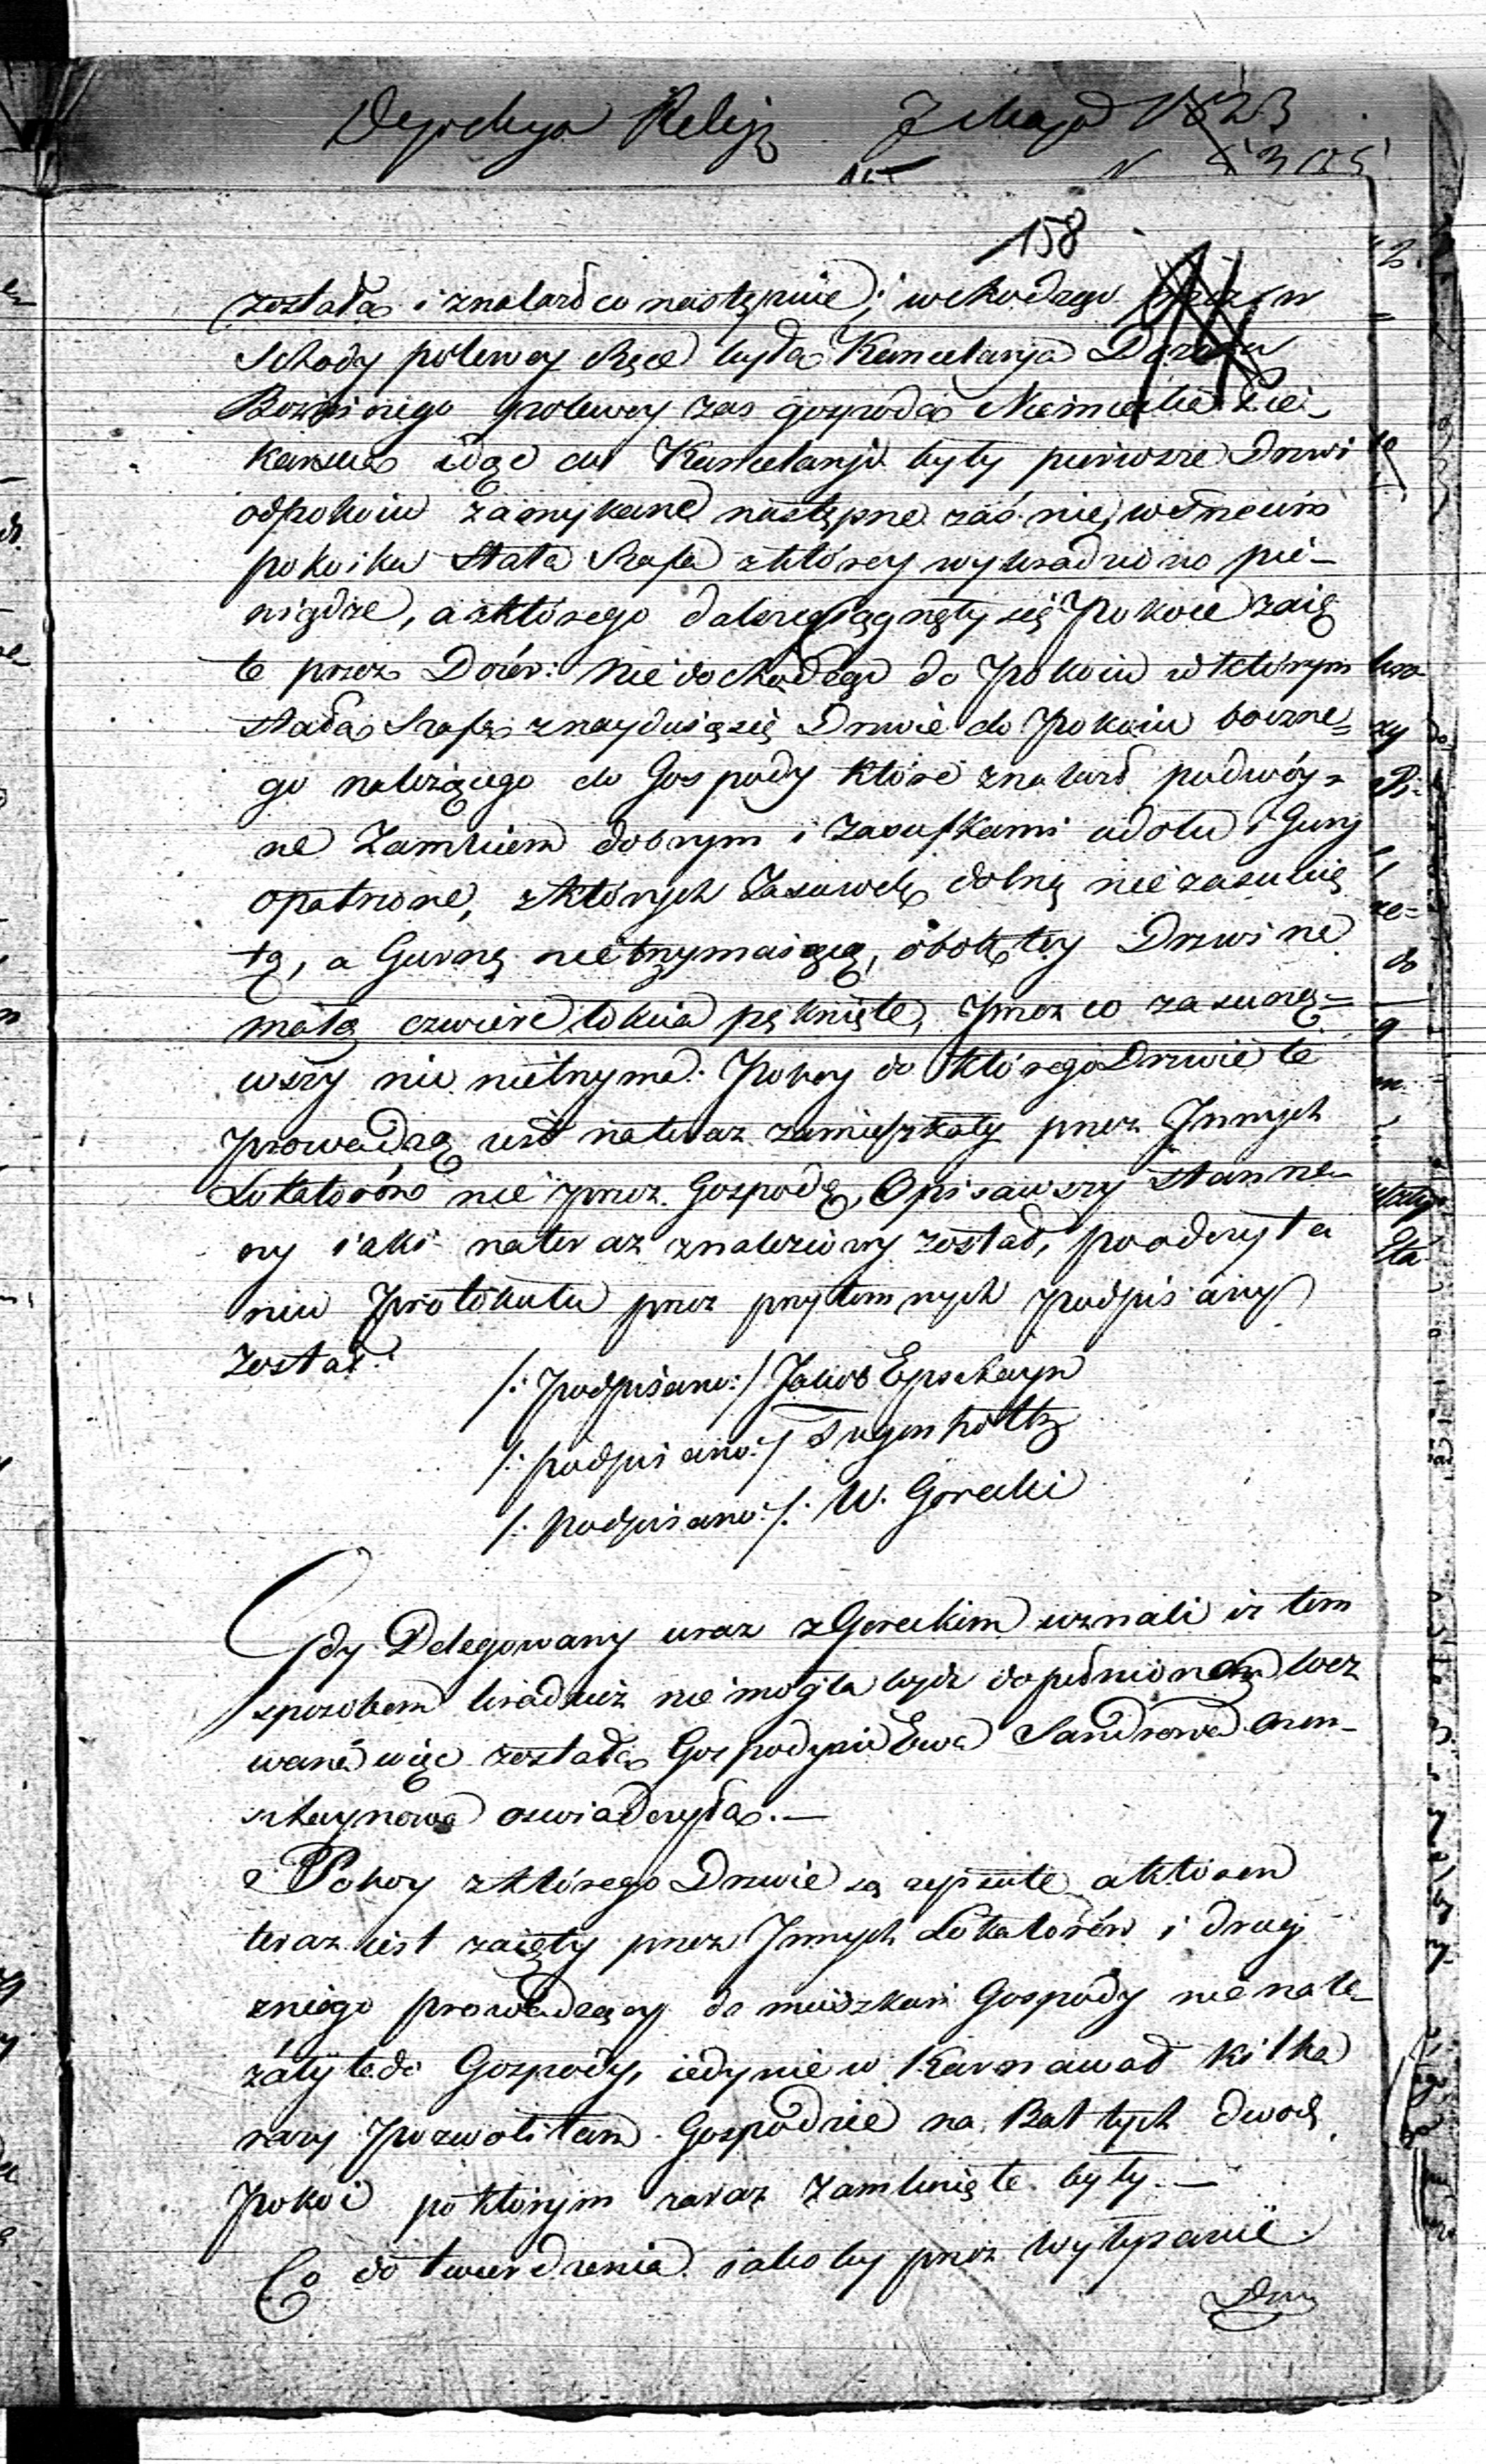 7 Maja 1823
N
158
została i znalazł co następuie; wchodząc
Schody po lewey Ręce była Kancelarya Dozoru
Bożniczego po lewey zas gospoda Niemiecka
idąc do Kancelaryi były pierwsze Drzwi
od pokoiu zamykane następne zaś nie, w Trzecim
pokoiku stała Szafa z którey wykradziono pie-
niądze, a z którego daley ciągnęły się Pokoie zaię
te przez Dozór: Nie dochodząc do Pokoiu w którym
stała Szafa znayduią się Drzwie do Pokoiu boczne=
go należącego do Gospody które znalazł podwóy=
ne Zamkiem dobrym i Zasufkami u dołu i Gury
opatrzone, z których Zasuwelę dolną nie zasunię
tą, a Gurną nietrzymaiącą, obok tey Drzwi na
małą czwierć łokcia pęknięte, przez co zasuną=
wszy nic nietrzyma. Pokoy do którego Drzwie te
prowadzą iest na teraz zamieszkały przez Innych
Lokatorów nie przez Gospodę, Opisawszy stan ne-
ny iaki na teraz znaleziony został, po odczyta
niu Protokułu przez przytomnych podpisany
został.
/: podpisano:/ Jakob Epsztayn
/: podpisano:/ Tugenholtz
/: podpisano:/: W. Gorecki
Gdy Delegowany wraz z Goreckim uznali iż tem
sposobem kradzież nie mogła bydz dopełnioną wez
wana więc została Gospodyni Ewa Sandrowa
oswiadczyła.—
Pokoy z którego Drzwie są zepsute a który
teraz iest zaięty przez Innych Lokatorów i drugi
z niego prowadzący do mieszkań Gospody nie nale-
żały tedo Gospody, iedynie w Karnawał kilka
razy Pozwoliłam Gospodzie na Bal tych dwoch
Pokoi po którym zaraz zamknięte były.—
Co do twierdzenia iakoby przez wyłypanie
Drzwi